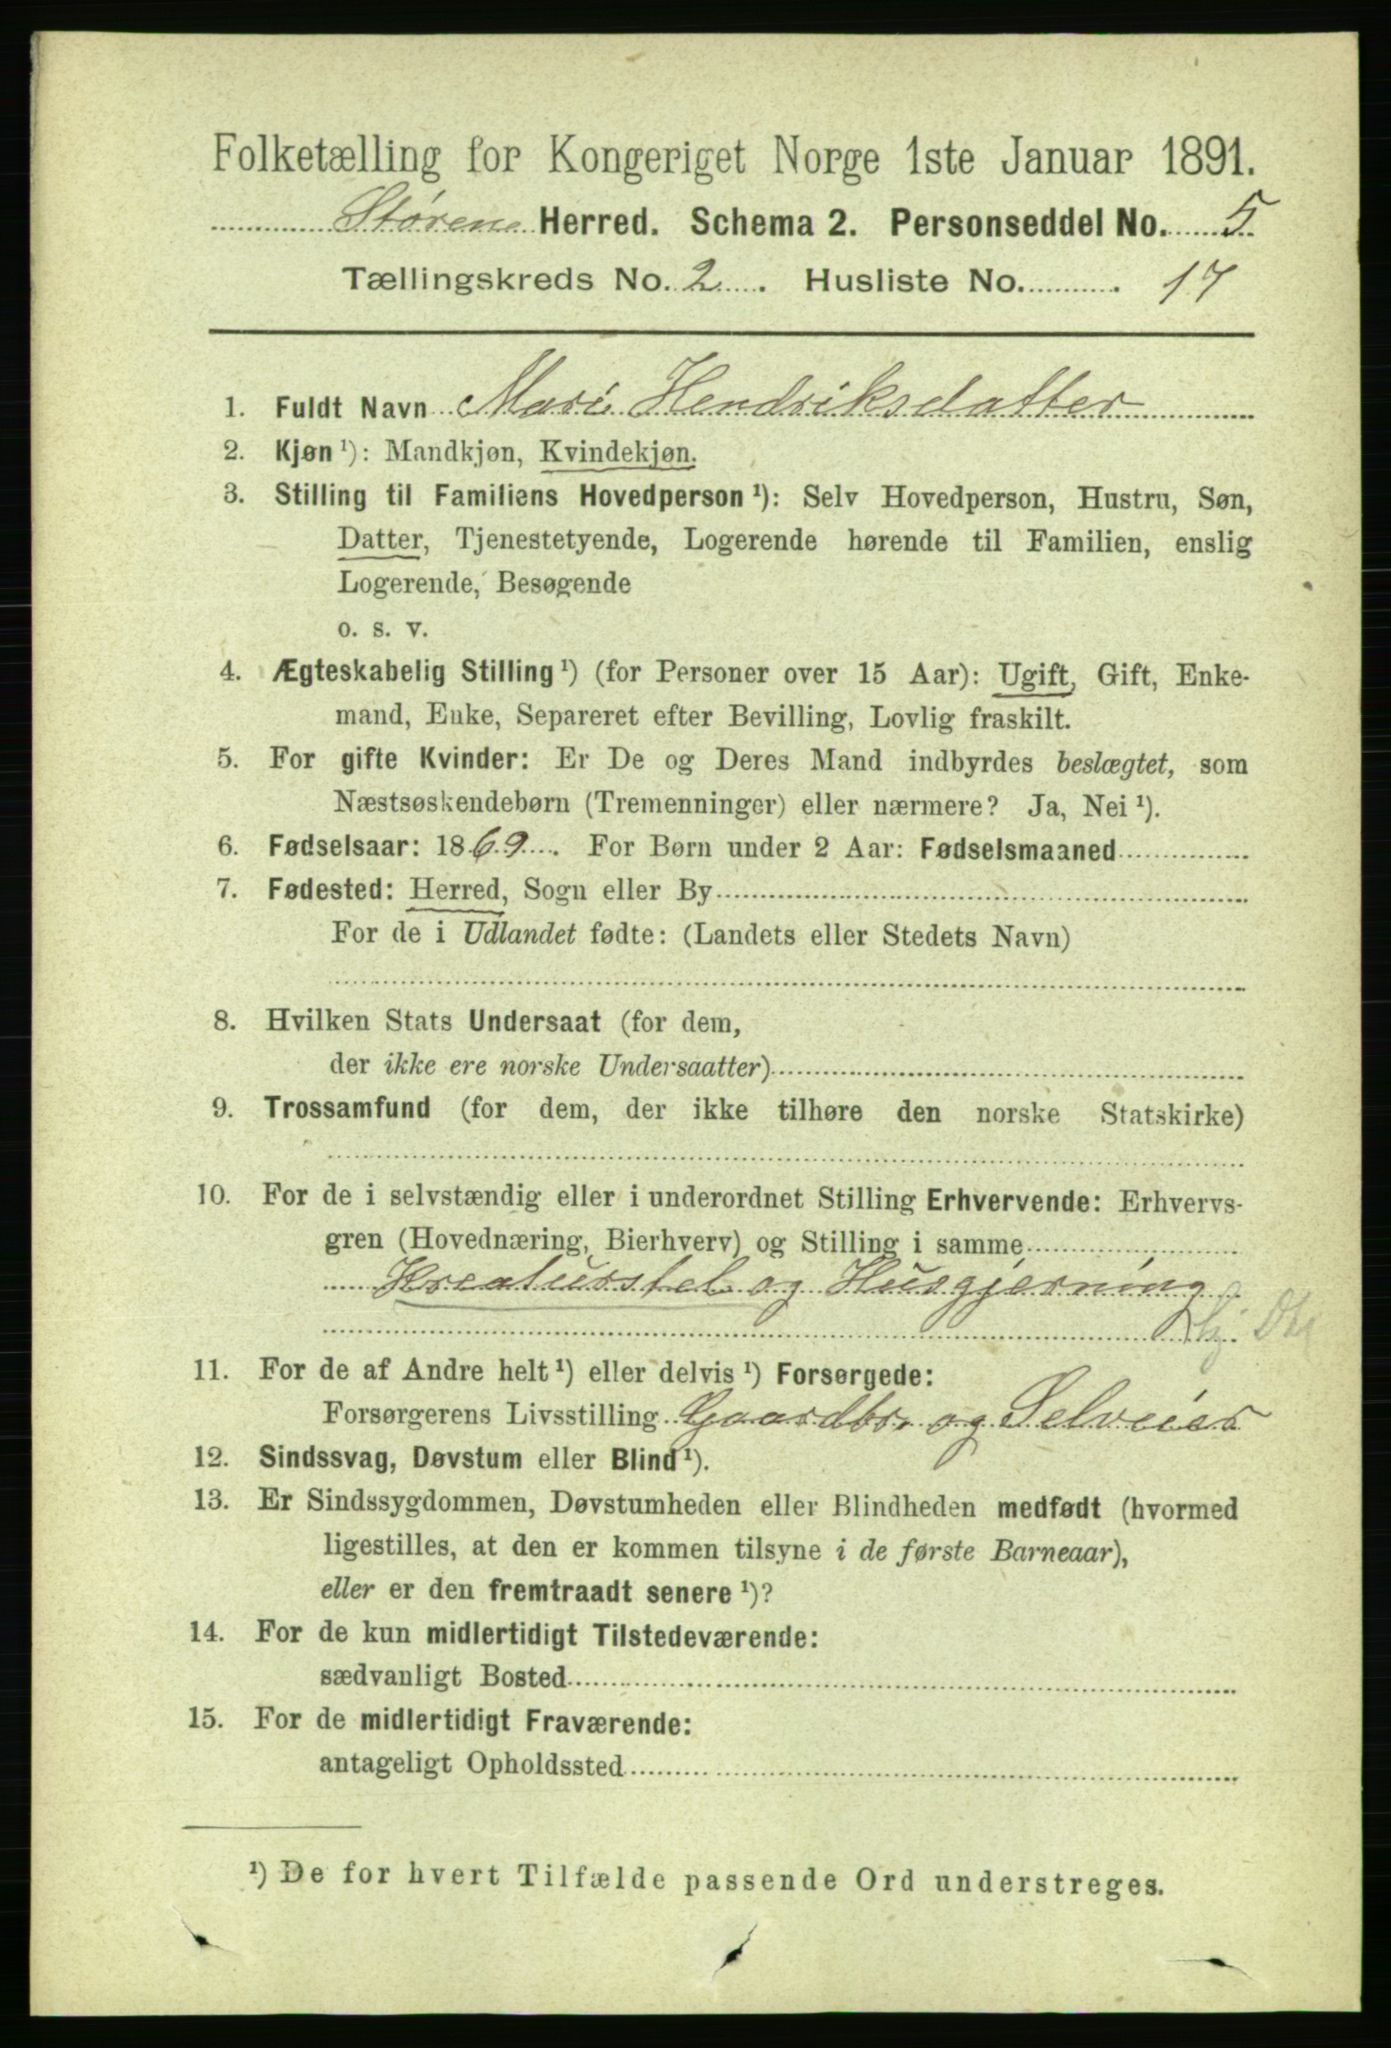 Folketælling for Kongeriget Norge 1ste Januar 1891.
Størens Herred. Schema 2. Personseddel No. 5
Tællingskreds No. 2. Husliste No. 17
1. Fuldt Navn Mari Hendriksdatter
2. Kjøn ¹): Mandkjøn, Kvindekjøn.
3. Stilling til Familiens Hovedperson ¹): Selv Hovedperson, Hustru, Søn,
Datter, Tjenestetyende, Logerende hørende til Familien, enslig
Logerende, Besøgende
o. s. v.
4. Ægteskabelig Stilling ¹) (for Personer over 15 Aar): Ugift, Gift, Enke-
mand, Enke, Separeret efter Bevilling, Lovlig fraskilt.
5. For gifte Kvinder: Er De og Deres Mand indbyrdes beslægtet, som
Næstsøskendebørn (Tremenninger) eller nærmere? Ja, Nei ¹).
6. Fødselsaar: 1869. For Børn under 2 Aar: Fødselsmaaned
7. Fødested: Herred, Sogn eller By
For de i Udlandet fødte: (Landets eller Stedets Navn)
8. Hvilken Stats Undersaat (for dem,
der ikke ere norske Undersaatter)
9. Trossamfund (for dem, der ikke tilhøre den norske Statskirke)
10. For de i selvstændig eller i underordnet Stilling Erhvervende: Erhvervs-
gren (Hovednæring, Bierhverv) og Stilling i samme
Kreaturstel og Husgjerning
11. For de af Andre helt ¹) eller delvis ¹) Forsørgede:
Forsørgerens Livsstilling Gaardbr. og Selveier
12. Sindssvag, Døvstum eller Blind ¹).
13. Er Sindssygdommen, Døvstumheden eller Blindheden medfødt (hvormed
ligestilles, at den er kommen tilsyne i de første Barneaar),
eller er den fremtraadt senere ¹)?
14. For de kun midlertidigt Tilstedeværende:
sædvanligt Bosted
15. For de midlertidigt Fraværende:
antageligt Opholdssted
¹) De for hvert Tilfælde passende Ord understreges.